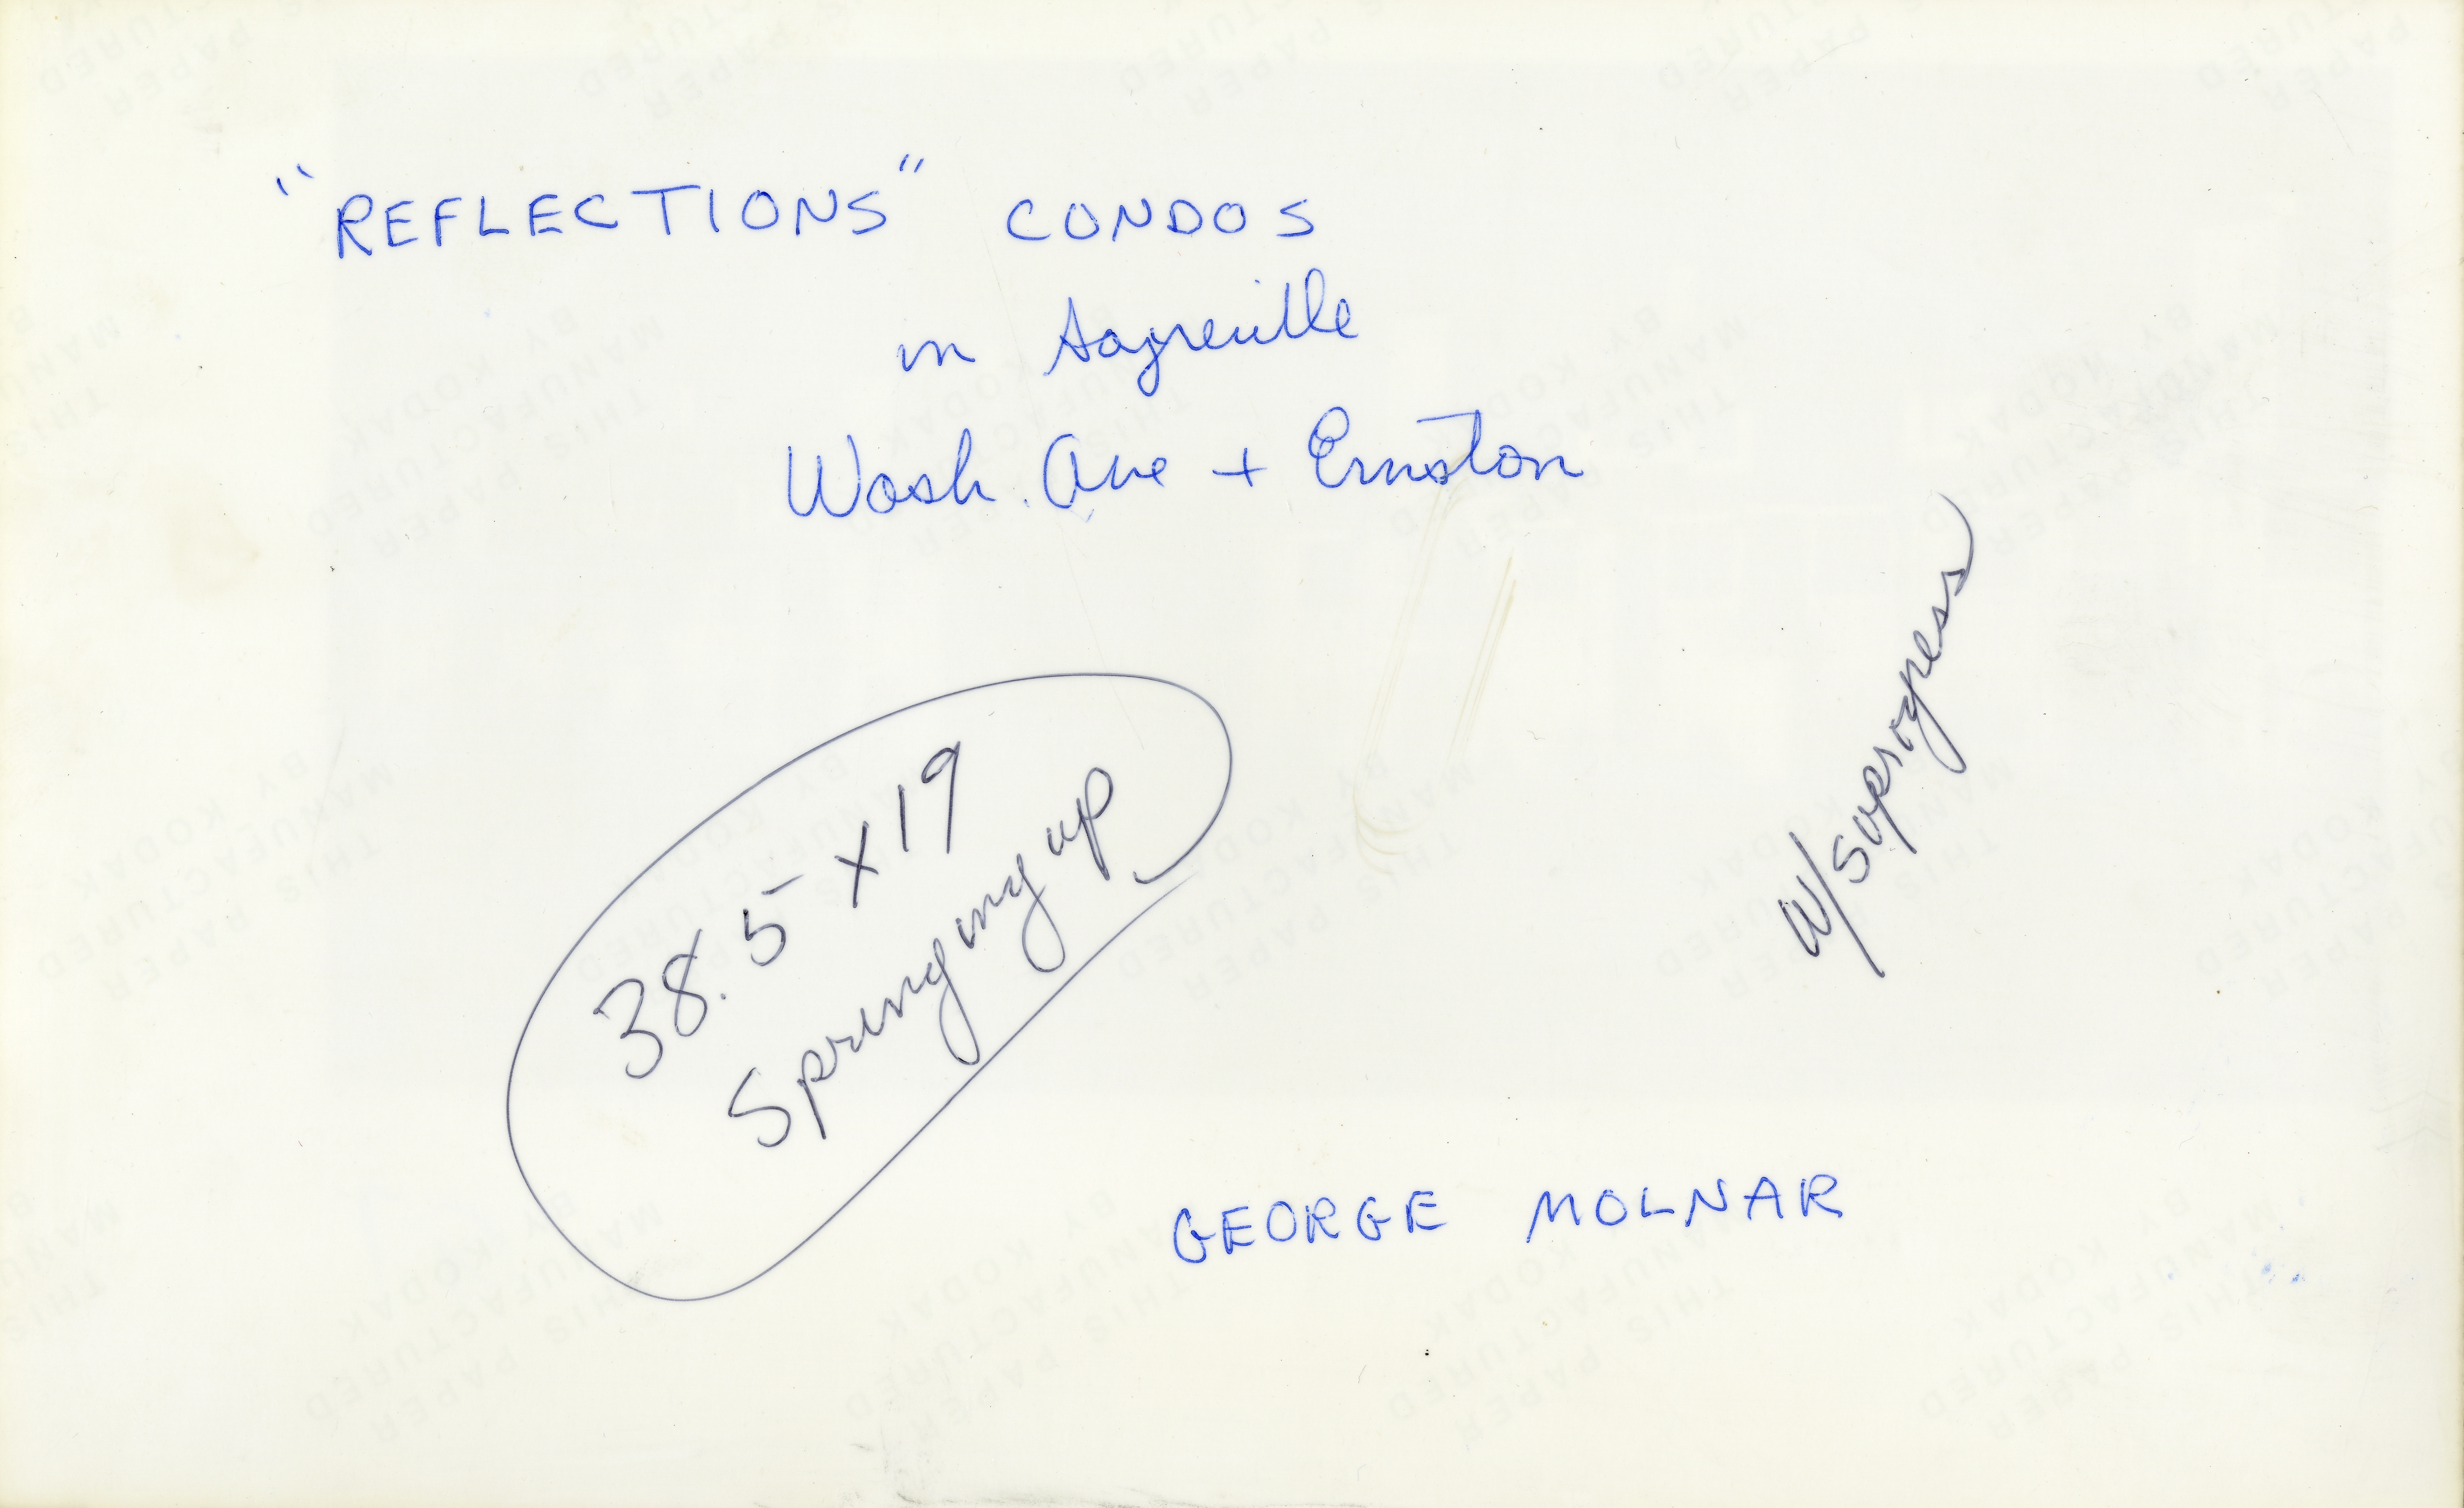 "REFLECTIONS" CONDOS
in Sayreville
Wash. Ave + Ernston
w/suprogress
38.5 x 19
Springing up
GEORGE MOLNAR
THIS PAPER
MANUFACTURED
BY KODAK